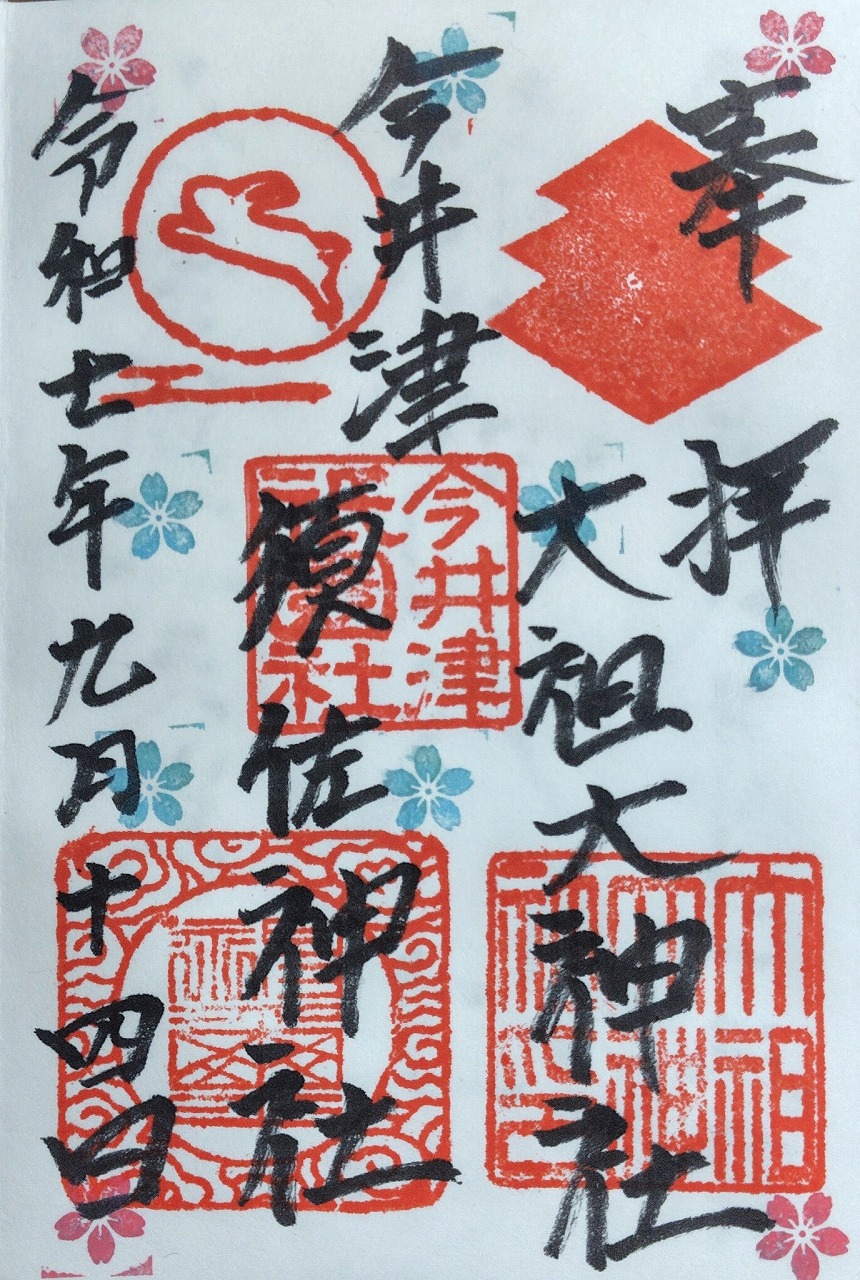 奉拝
大祖大神社
今井津
須佐神社
令和七年九月十四日
今井津
社
大祖